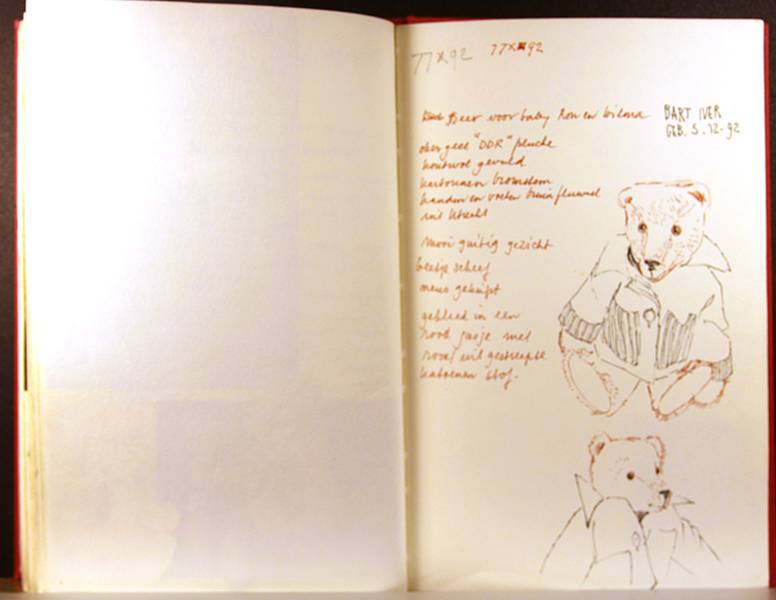 77x92 77x92
Beer voor baby Ron en Wilma
BART IVER
GEB. 5.12-92
oker geel "DDR" pluche
houtwol gevuld
kartonnen bromstem
handen en voeten bruin fluweel
uit Utrecht
mooi guitig gezicht
beetje scheef
neus geknipt
gekleed in een
rood jasje met
rood/wit gestreepte
katoenen stof.